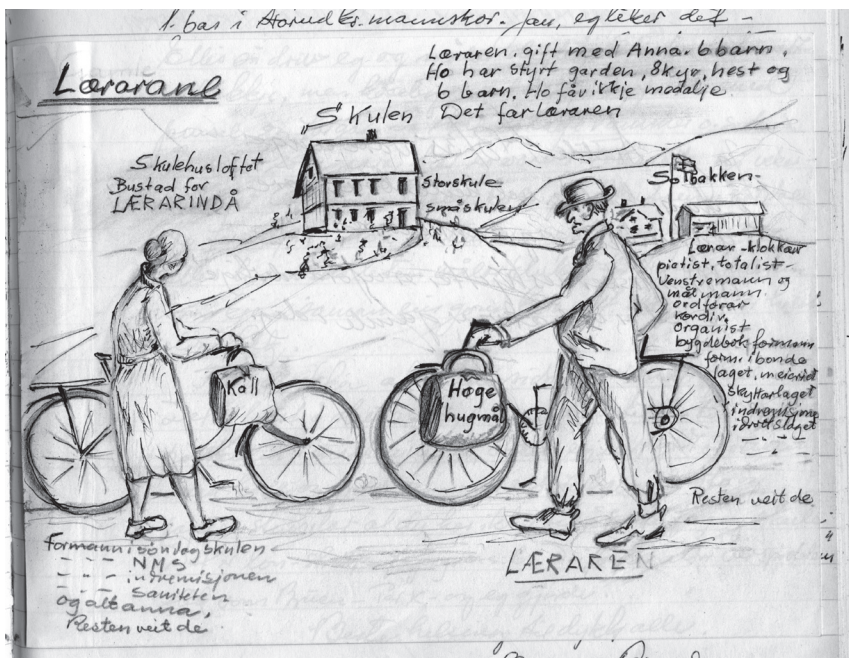 1. bas i mannskor. Jau, eg liker det –
Lærarane
Læraren, gift med Anna. 6 barn.
Ho har styrt garden, 8 kyr, hest og
6 barn. Ho får ikkje medalje.
Det får læraren
"Skulen
Skulehusloftet
Bustad for
LÆRARINDÅ
Storskule
småskulen
Solbakken –
Lærar – klokkar
pietist, totalist –
Venstremann og
målmann.
ordførar
verdiv.
organist
bygdebok formann
form. i bonde
laget, meieriet
skyttarlaget
indremisjine
idrottslaget
– " – " –
Resten veit de
Kall
Høge
hugmål
Formann i søndagskulen –
– " – " – NMS
– " – " – indremisjonen
– " – " – Saniteten
og alt anna,
Resten veit de
LÆRAREN